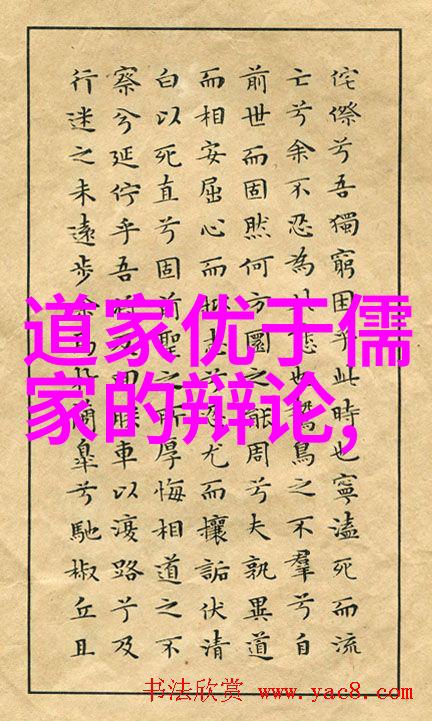 侘傺兮吾獨窮困乎此時也寧溘死而流
亡兮余不忍為此態也鷙鳥之不羣兮自
前世而固然何方圜之能周兮夫孰異道
而相安屈心而抑志兮忍尤而攘詬伏清
白以死直兮固前聖之所厚悔相道之不
察兮延佇乎吾將反回朕車以復路兮及
行迷之未遠步余馬於蘭皋兮馳椒丘且
道家优于儒
家的辩论,
书法欣赏 www.yac8.com